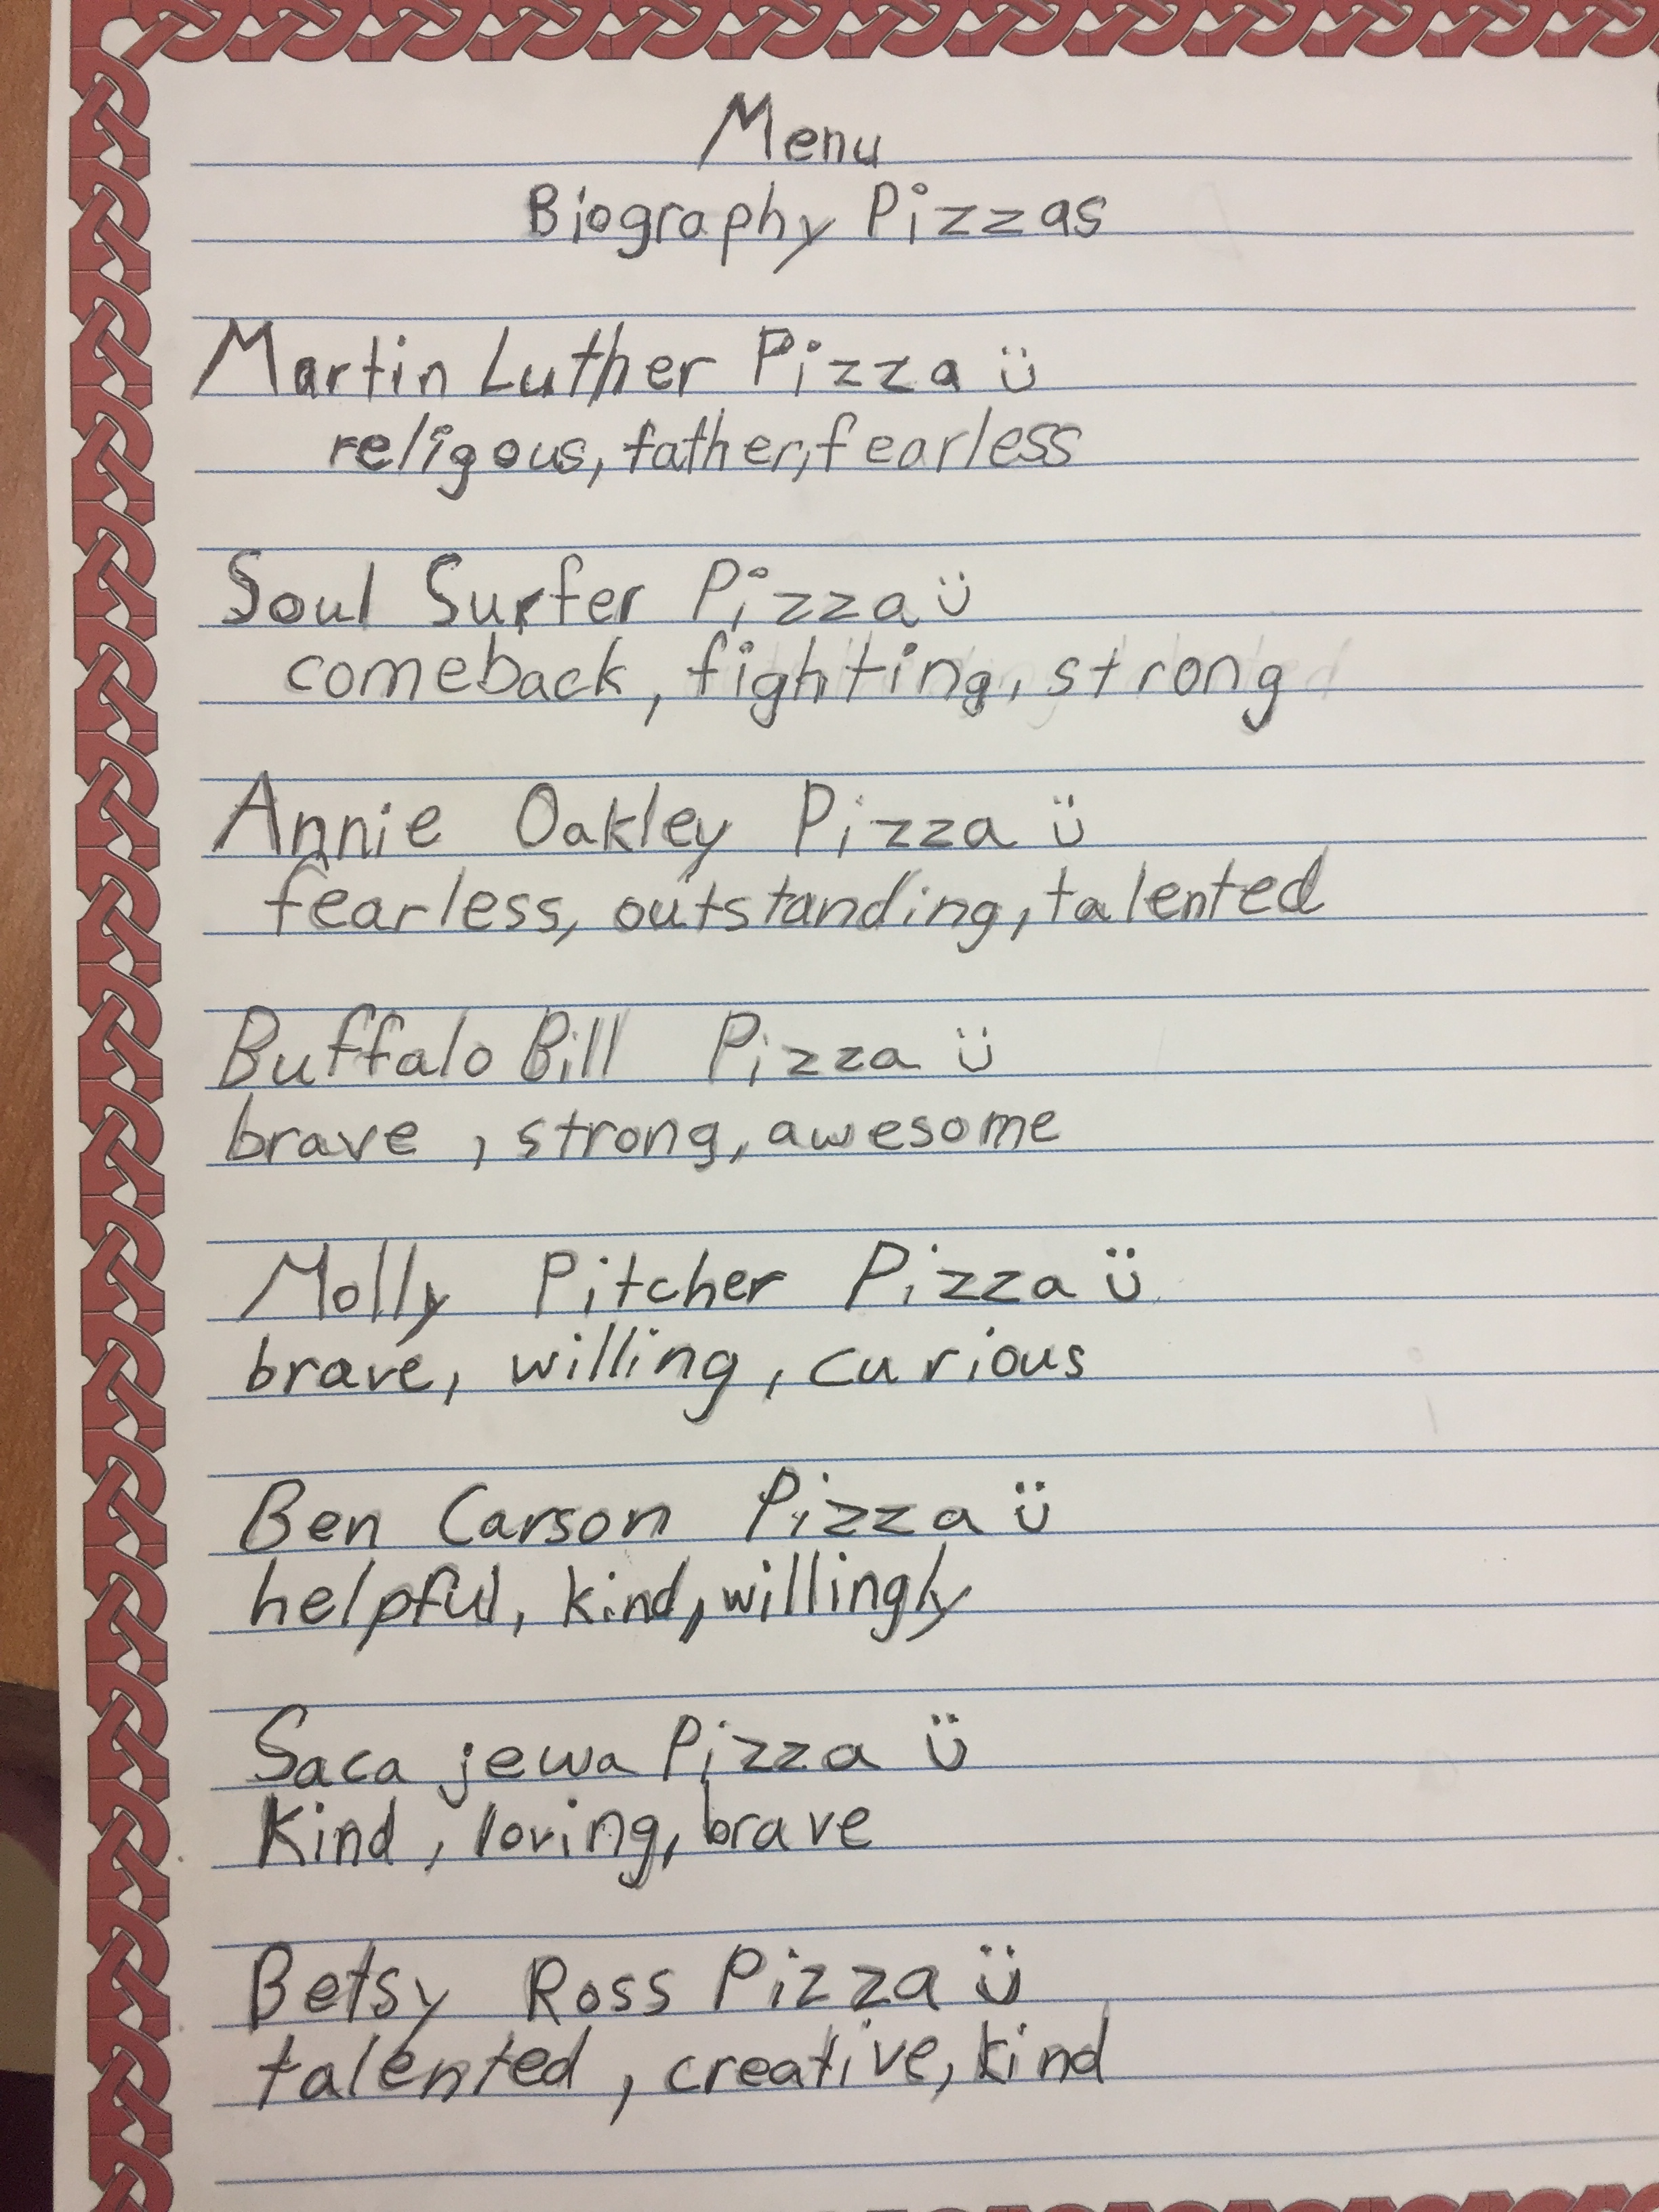 Menu
Biography Pizzas
Martin Luther Pizza ü
religous, father, fearless
Soul Surfer Pizza ü
comeback, fighting, strong
Annie Oakley Pizza ü
fearless, outstanding, talented
Buffalo Bill Pizza ü
brave , strong, awesome
Molly Pitcher Pizza ü
brave, willing, curious
Ben Carson Pizza ü
helpful, kind, willingly
Saca jewa Pizza ü
Kind, loving, brave
Betsy Ross Pizza ü
talented, creative, kind